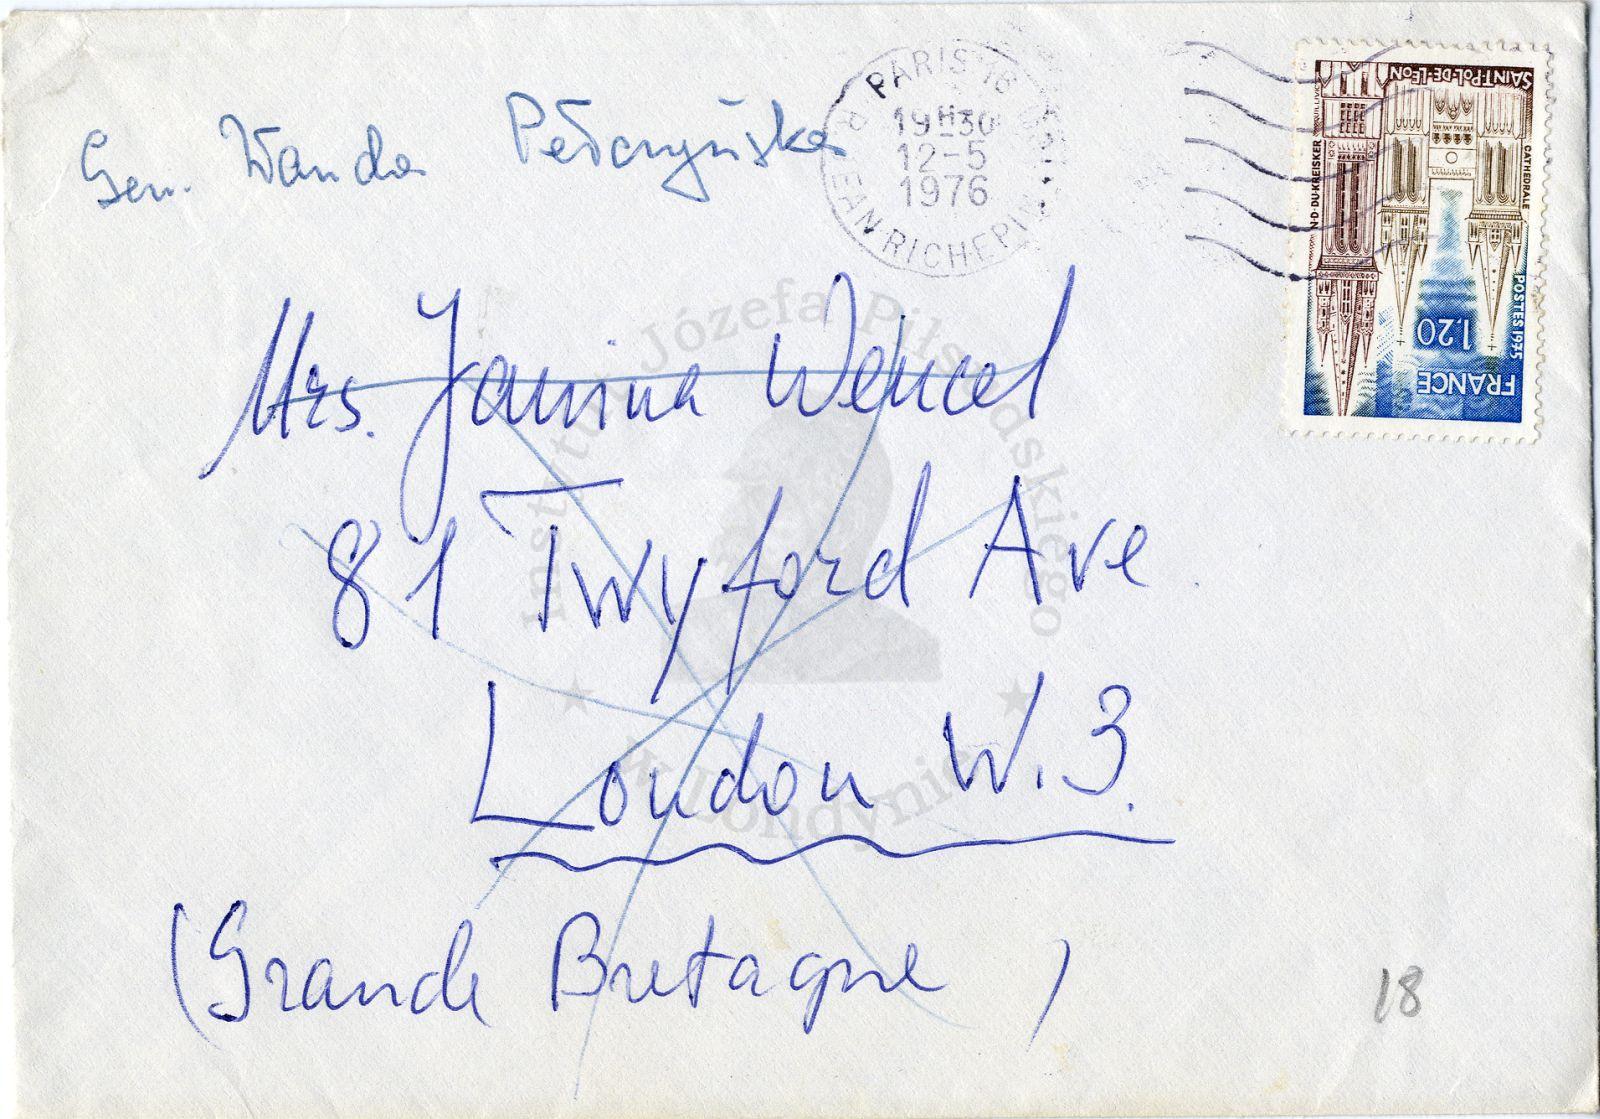 Sen. Wanda Pełczyńska
PARIS 16
19H30
12-5
1976
R. JEAN RICHEPIN
SAINT-POL-DE-LEON
CATHEDRALE
N-D-DU-KREISKER
POSTES 1975
1,20
FRANCE
Mrs. Janina Wencel
81 Twyford Ave.
London W.3.
(Grande Bretagne)
18
Instytut Józefa Piłsudskiego
w Londynie